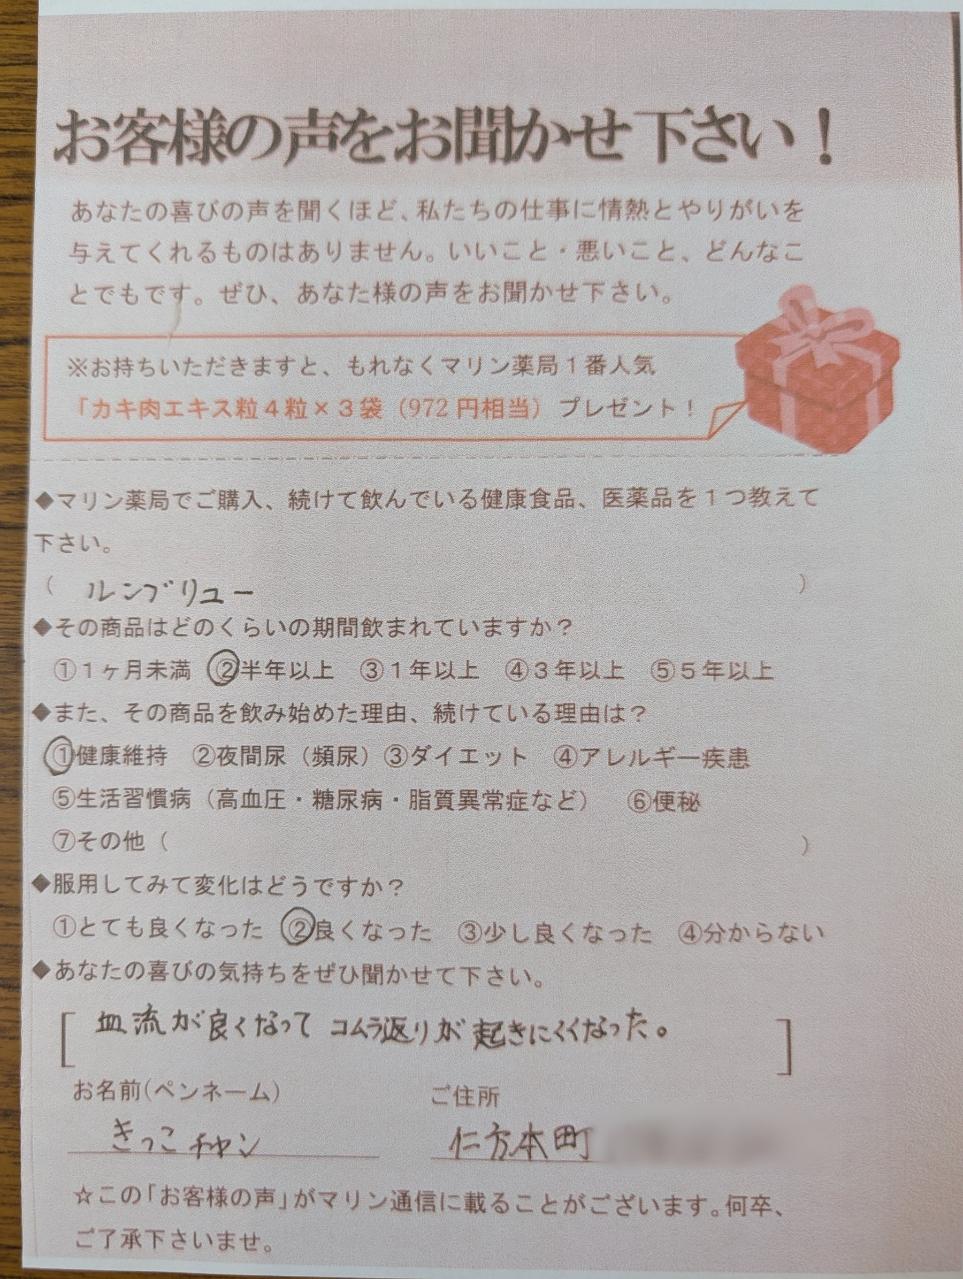 お客様の声をお聞かせ下さい！
あなたの喜びの声を聞くほど、私たちの仕事に情熱とやりがいを
与えてくれるものはありません。いいこと・悪いこと、どんなこ
とでもです。ぜひ、あなた様の声をお聞かせ下さい。
※お持ちいただきますと、もれなくマリン薬局１番人気
「カキ肉エキス粒４粒×３袋（972円相当）プレゼント！
◆マリン薬局でご購入、続けて飲んでいる健康食品、医薬品を１つ教えて
下さい。
（ ルンブリュー ）
◆その商品はどのくらいの期間飲まれていますか？
①１ヶ月未満 ②半年以上 ③１年以上 ④３年以上 ⑤５年以上
◆また、その商品を飲み始めた理由、続けている理由は？
①健康維持 ②夜間尿（頻尿）③ダイエット ④アレルギー疾患
⑤生活習慣病（高血圧・糖尿病・脂質異常症など） ⑥便秘
⑦その他（ ）
◆服用してみて変化はどうですか？
①とても良くなった ②良くなった ③少し良くなった ④分からない
◆あなたの喜びの気持ちをぜひ聞かせて下さい。
［血流が良くなって コムラ返りが 起きにくくなった。］
お名前(ペンネーム) ご住所
きっこチャン 仁方本町
☆この「お客様の声」がマリン通信に載ることがございます。何卒、
ご了承下さいませ。